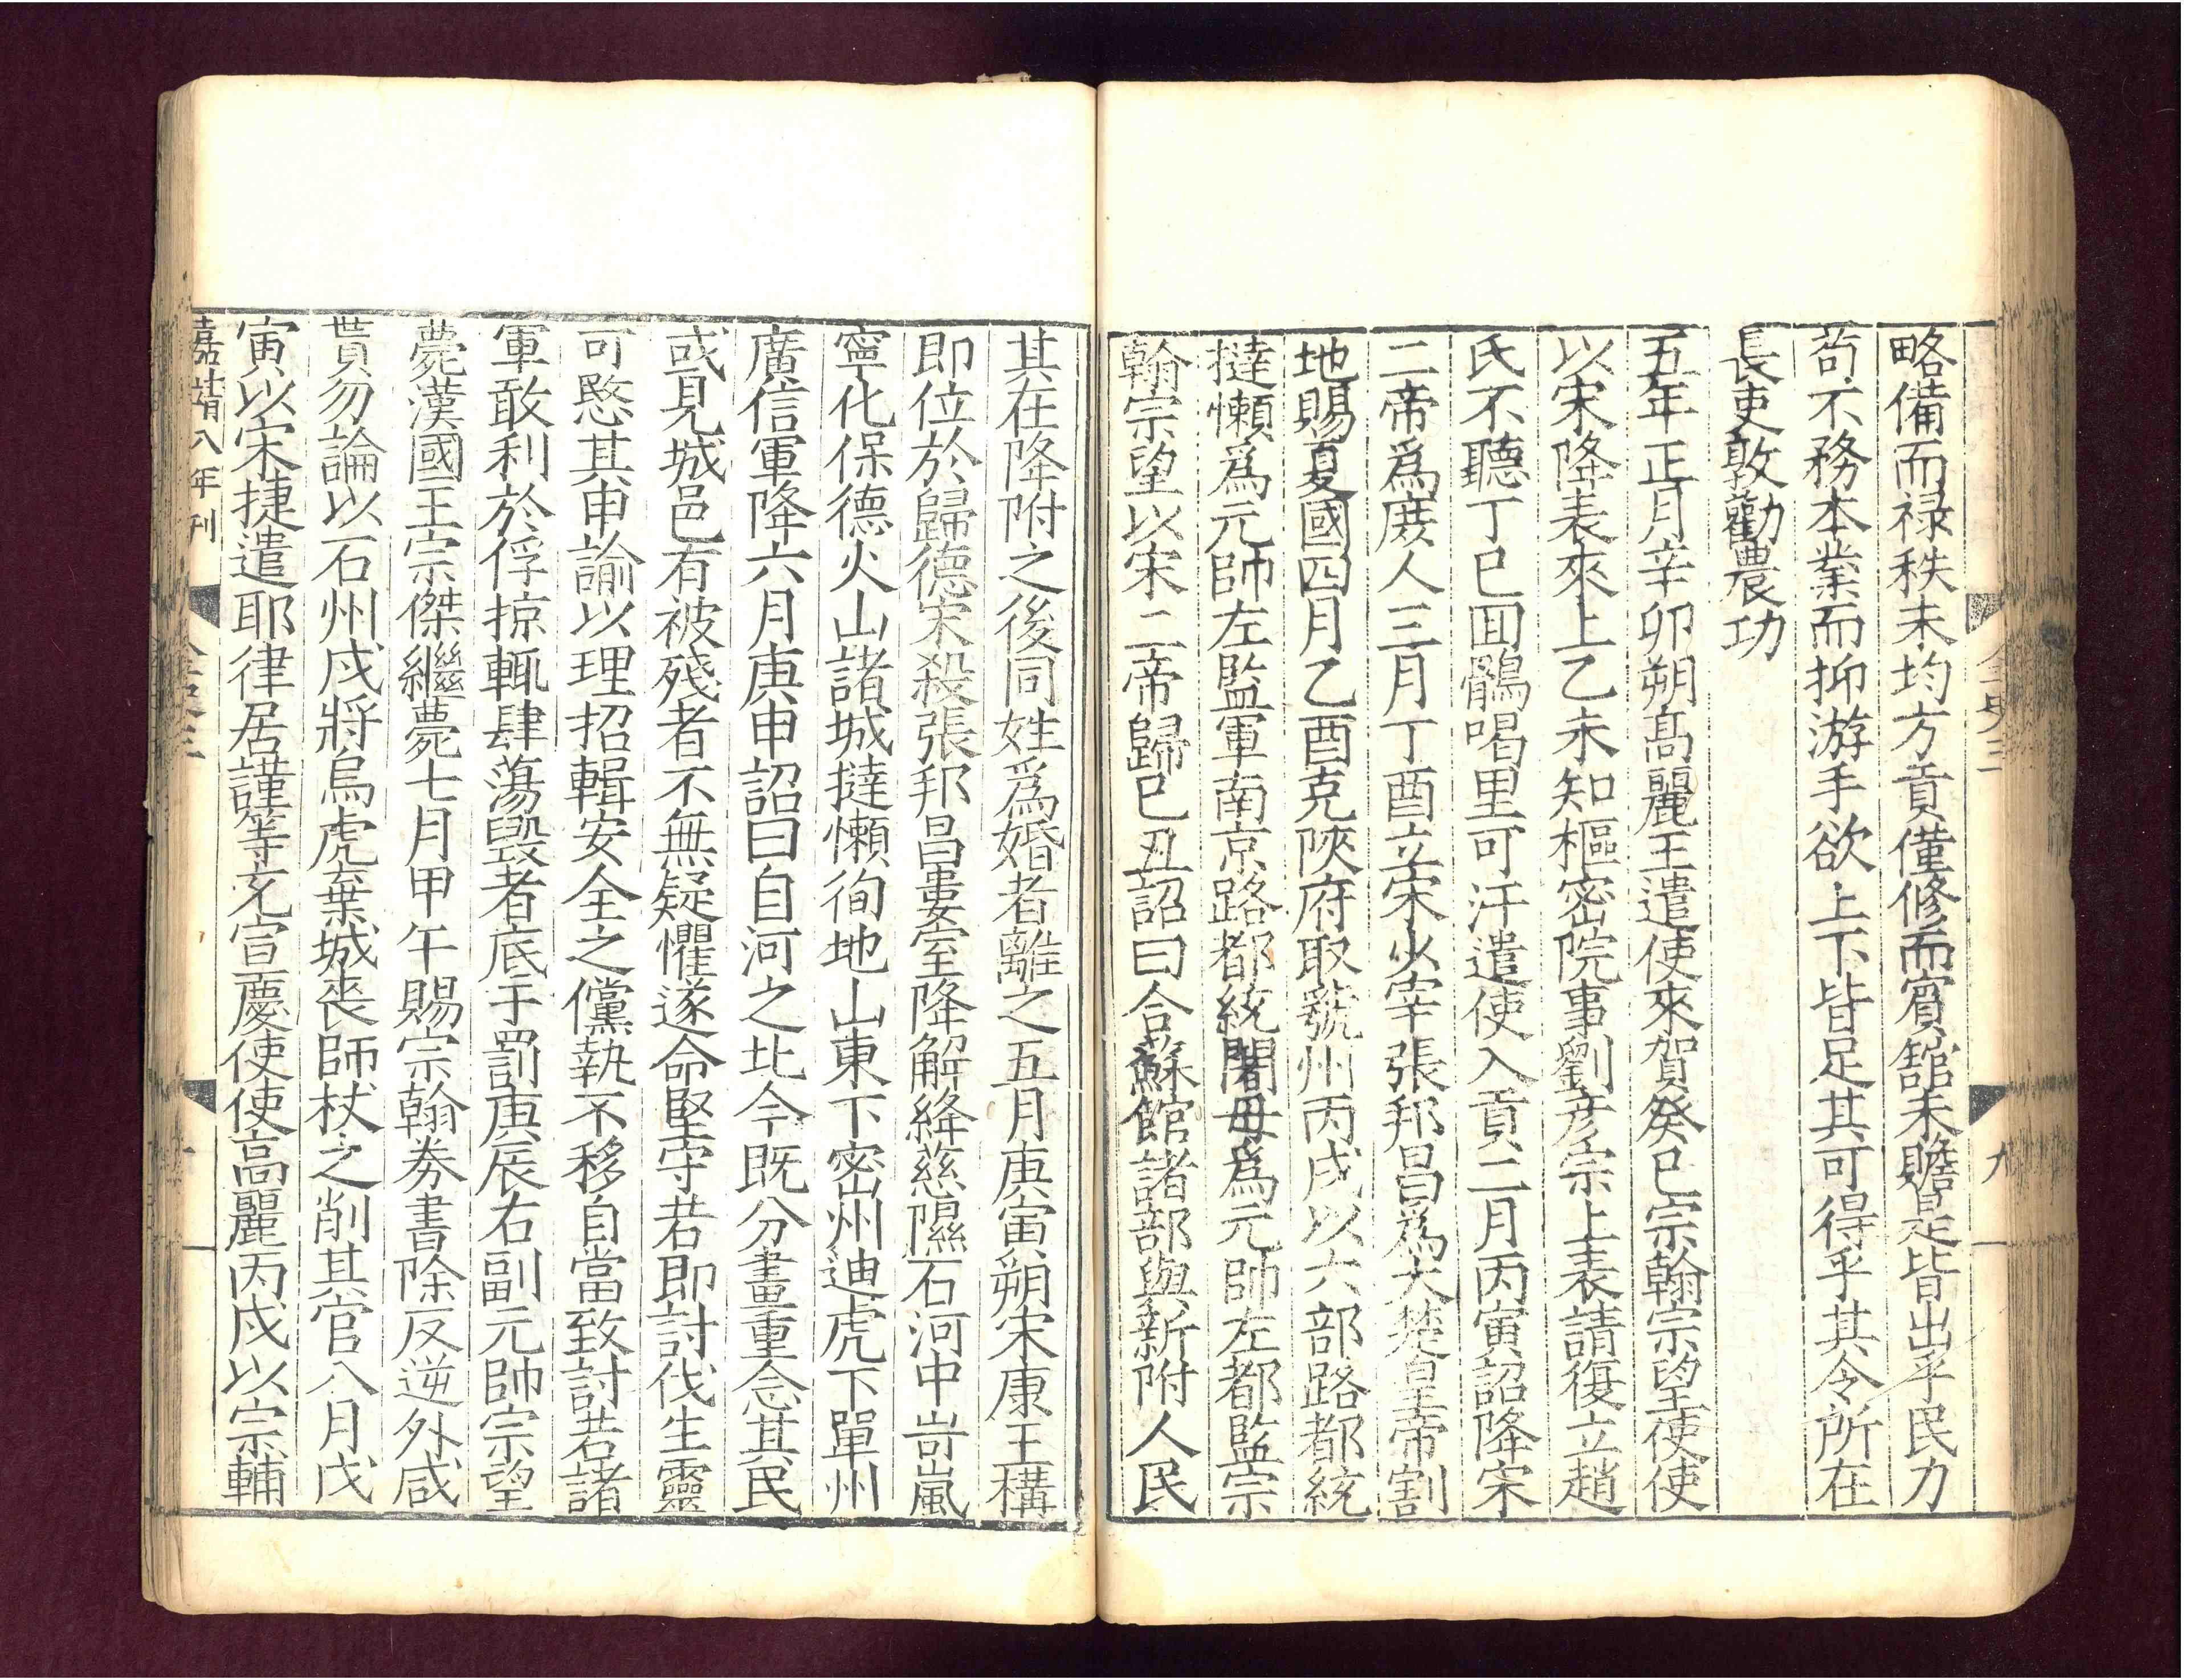 金史三
九
略備而禄秩未均方貢僅修而賓舘未贍是皆出乎民力
苟不務本業而抑游手欲上下皆足其可得乎其令所在
長吏敦勸農功
五年正月辛卯朔髙麗王遣使來賀癸巳宗翰宗望使使
以宋降表來上乙未知樞密院事劉彦宗上表請復立趙
氏不聽丁巳囬鶻喝里可汗遣使入貢二月丙寅詔降宋
二帝爲庻人三月丁酉立宋少宰張邦昌爲大楚皇帝割
地賜夏國四月乙酉克陜府取虢州丙戌以六部路都統
撻懶爲元帥左監軍南京路都統闍母爲元帥左都監宗
翰宗望以宋二帝歸巳丑詔曰合蘇館諸部與新附人民
其在降附之後同姓爲婚者離之五月庚寅朔宋康王構
即位於歸德宋殺張邦昌婁室降解絳慈隰石河中岢嵐
寧化保德火山諸城撻懶徇地山東下密州迪虎下單州
廣信軍降六月庚申詔曰自河之北今既分畫重念其民
或見城邑有被殘者不無疑懼遂命堅守若即討伐生靈
可愍其申諭以理招輯安全之儻執不移自當致討若諸
軍敢利於俘掠輒肆蕩毀者底于罰庚辰右副元帥宗望
薨漢國王宗傑繼薨七月甲午賜宗翰券書除反逆外咸
貰勿論以石州戍將烏虎棄城喪師杖之削其官八月戊
寅以宋捷遣耶律居謹等充宣慶使使高麗丙戌以宗輔
嘉靖八年刊